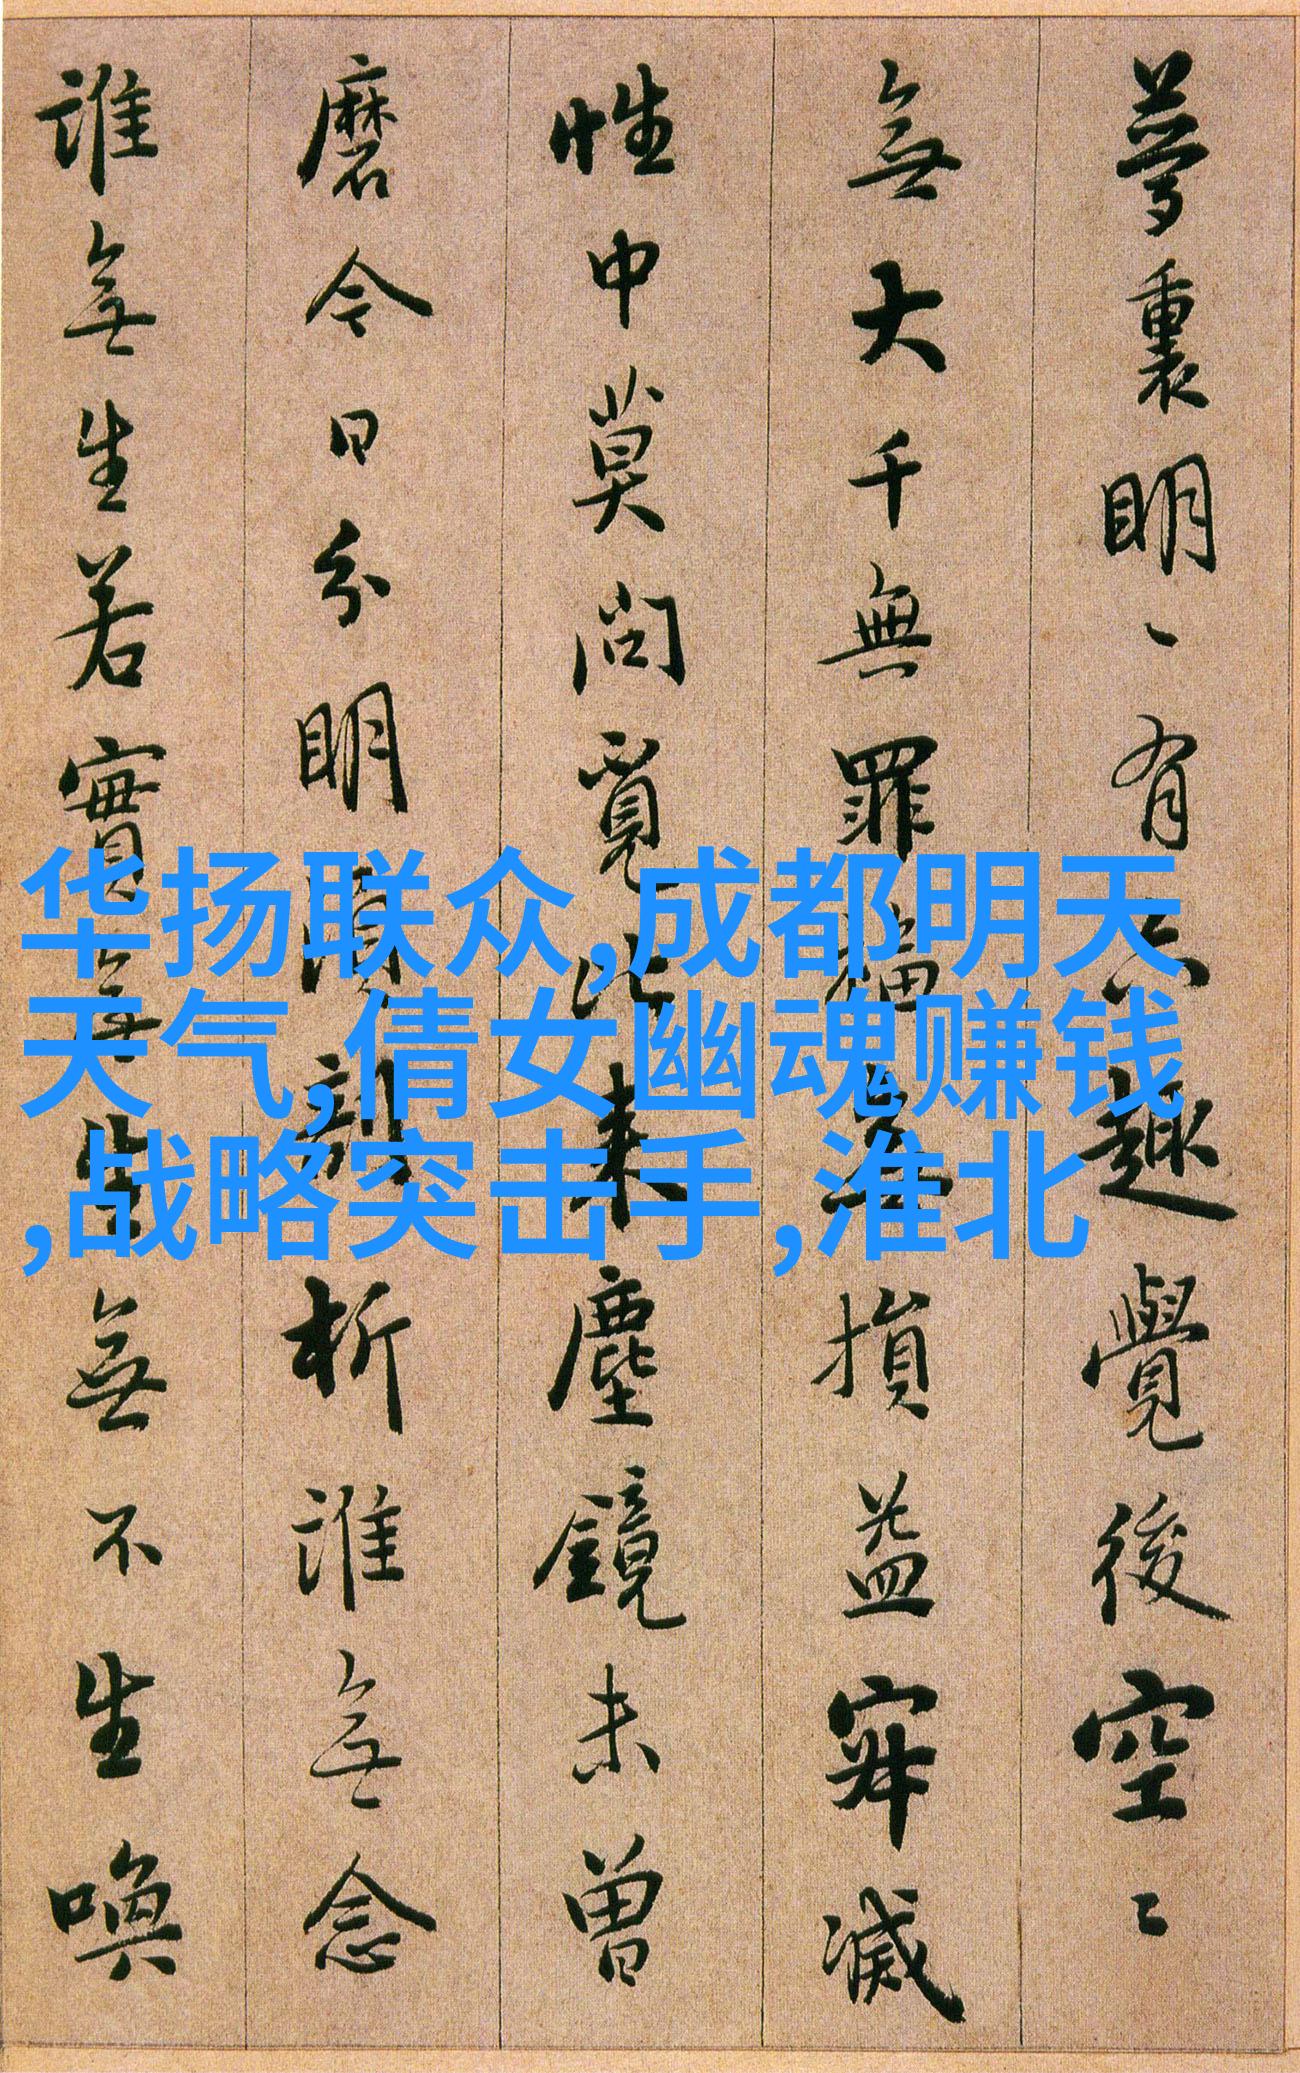 夢裏明丶有六趣覺後空〻
無大千無罪福無損益寂滅
性中莫問覓比來塵鏡未曾
磨今日分明須剖析誰無念
誰無生若實無生無不生喚
华扬联众,成都明天
天气,倩女幽魂赚钱
,战略突击手,淮北